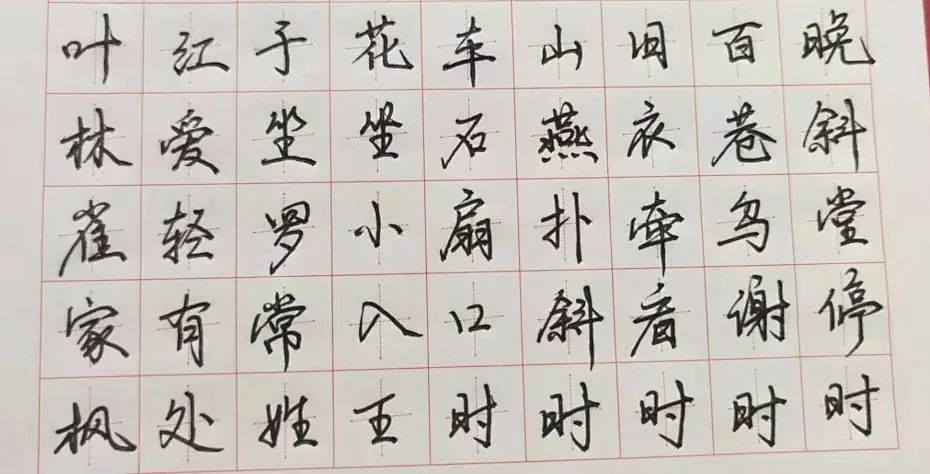 叶红子花车山旧百晚
林爱坐坐石燕衣巷斜
雀轻罗小扇扑牵乌堂
家有常入口斜看谢停
枫处姓王时时时时时